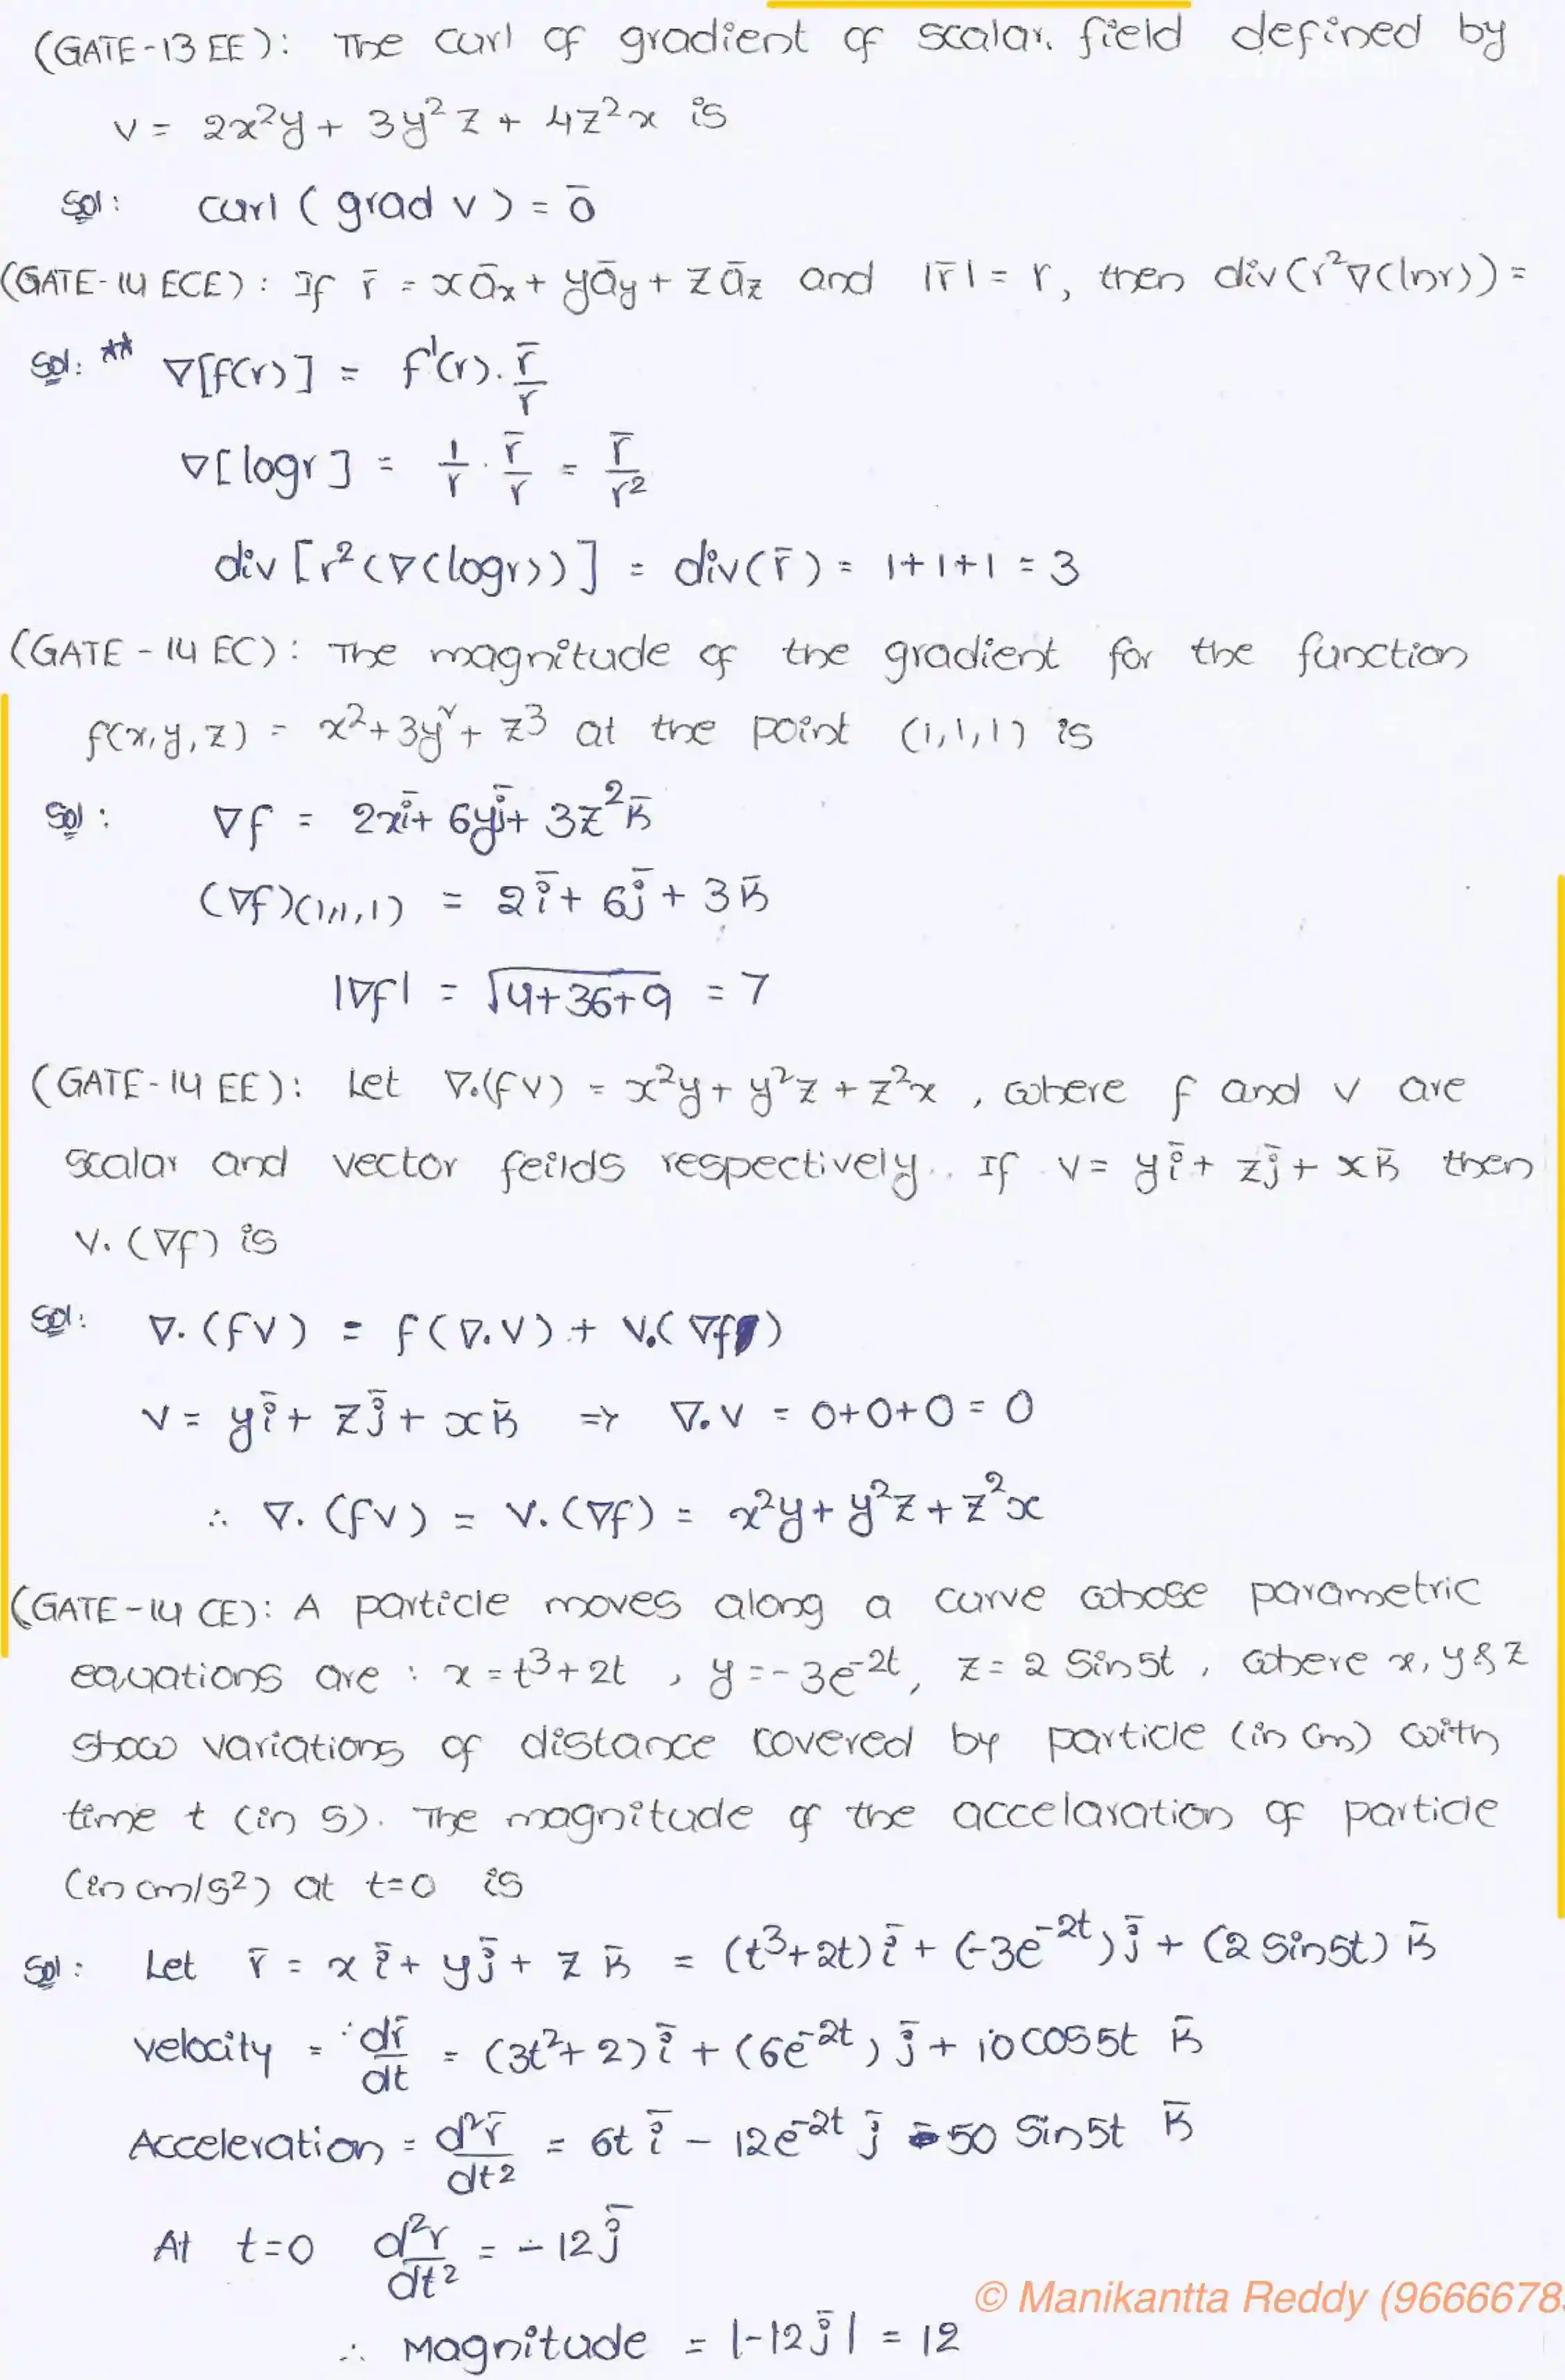 (GATE-13 EE): The curl of gradient of scalar field defined by
V = 2x²y + 3y²z + 4z²x is
Sol: curl (grad v) = 0̄
(GATE-14 ECE): If r̄ = xāx + yāy + zāz and |r̄| = r, then div(r²∇(lnr)) =
Sol: ** ∇[f(r)] = f'(r). r̄/r
∇[logr] = 1/r . r̄/r = r̄/r²
div [r²(∇(logr))] = div(r̄) = 1+1+1 = 3
(GATE-14 EC): The magnitude of the gradient for the function
f(x,y,z) = x²+3y²+z³ at the point (1,1,1) is
Sol: ∇f = 2xī + 6yj̄ + 3z²k̄
(∇f)(1,1,1) = 2ī + 6j̄ + 3k̄
|∇f| = √4+36+9 = 7
(GATE-14 EE): Let ∇.(fV) = x²y + y²z + z²x , where f and v are
scalar and vector feilds respectively.. If V = yī + zj̄ + xk̄ then
V.(∇f) is
Sol: ∇.(fV) = f(∇.V) + V.(∇f)
V = yī + zj̄ + xk̄ ⇒ ∇.V = 0+0+0 = 0
∴ ∇.(fV) = V.(∇f) = x²y + y²z + z²x
(GATE-14 CE): A particle moves along a curve whose parametric
equations are : x = t³+2t , y = -3e^-2t, z = 2 Sin5t , where x, y & z
show variations of distance covered by particle (in cm) with
time t (in s). The magnitude of the accelaration of particle
(in cm/s²) at t=0 is
Sol: Let r̄ = xī + yj̄ + zk̄ = (t³+2t)ī + (-3e^-2t)j̄ + (2 Sin5t)k̄
velocity = dr̄/dt = (3t²+2)ī + (6e^-2t)j̄ + 10cos5t k̄
Acceleration = d²r̄/dt² = 6t ī - 12e^-2t j̄ - 50 Sin5t k̄
At t=0 d²r/dt² = -12j̄
∴ Magnitude = |-12j̄| = 12
© Manikantta Reddy (9666678